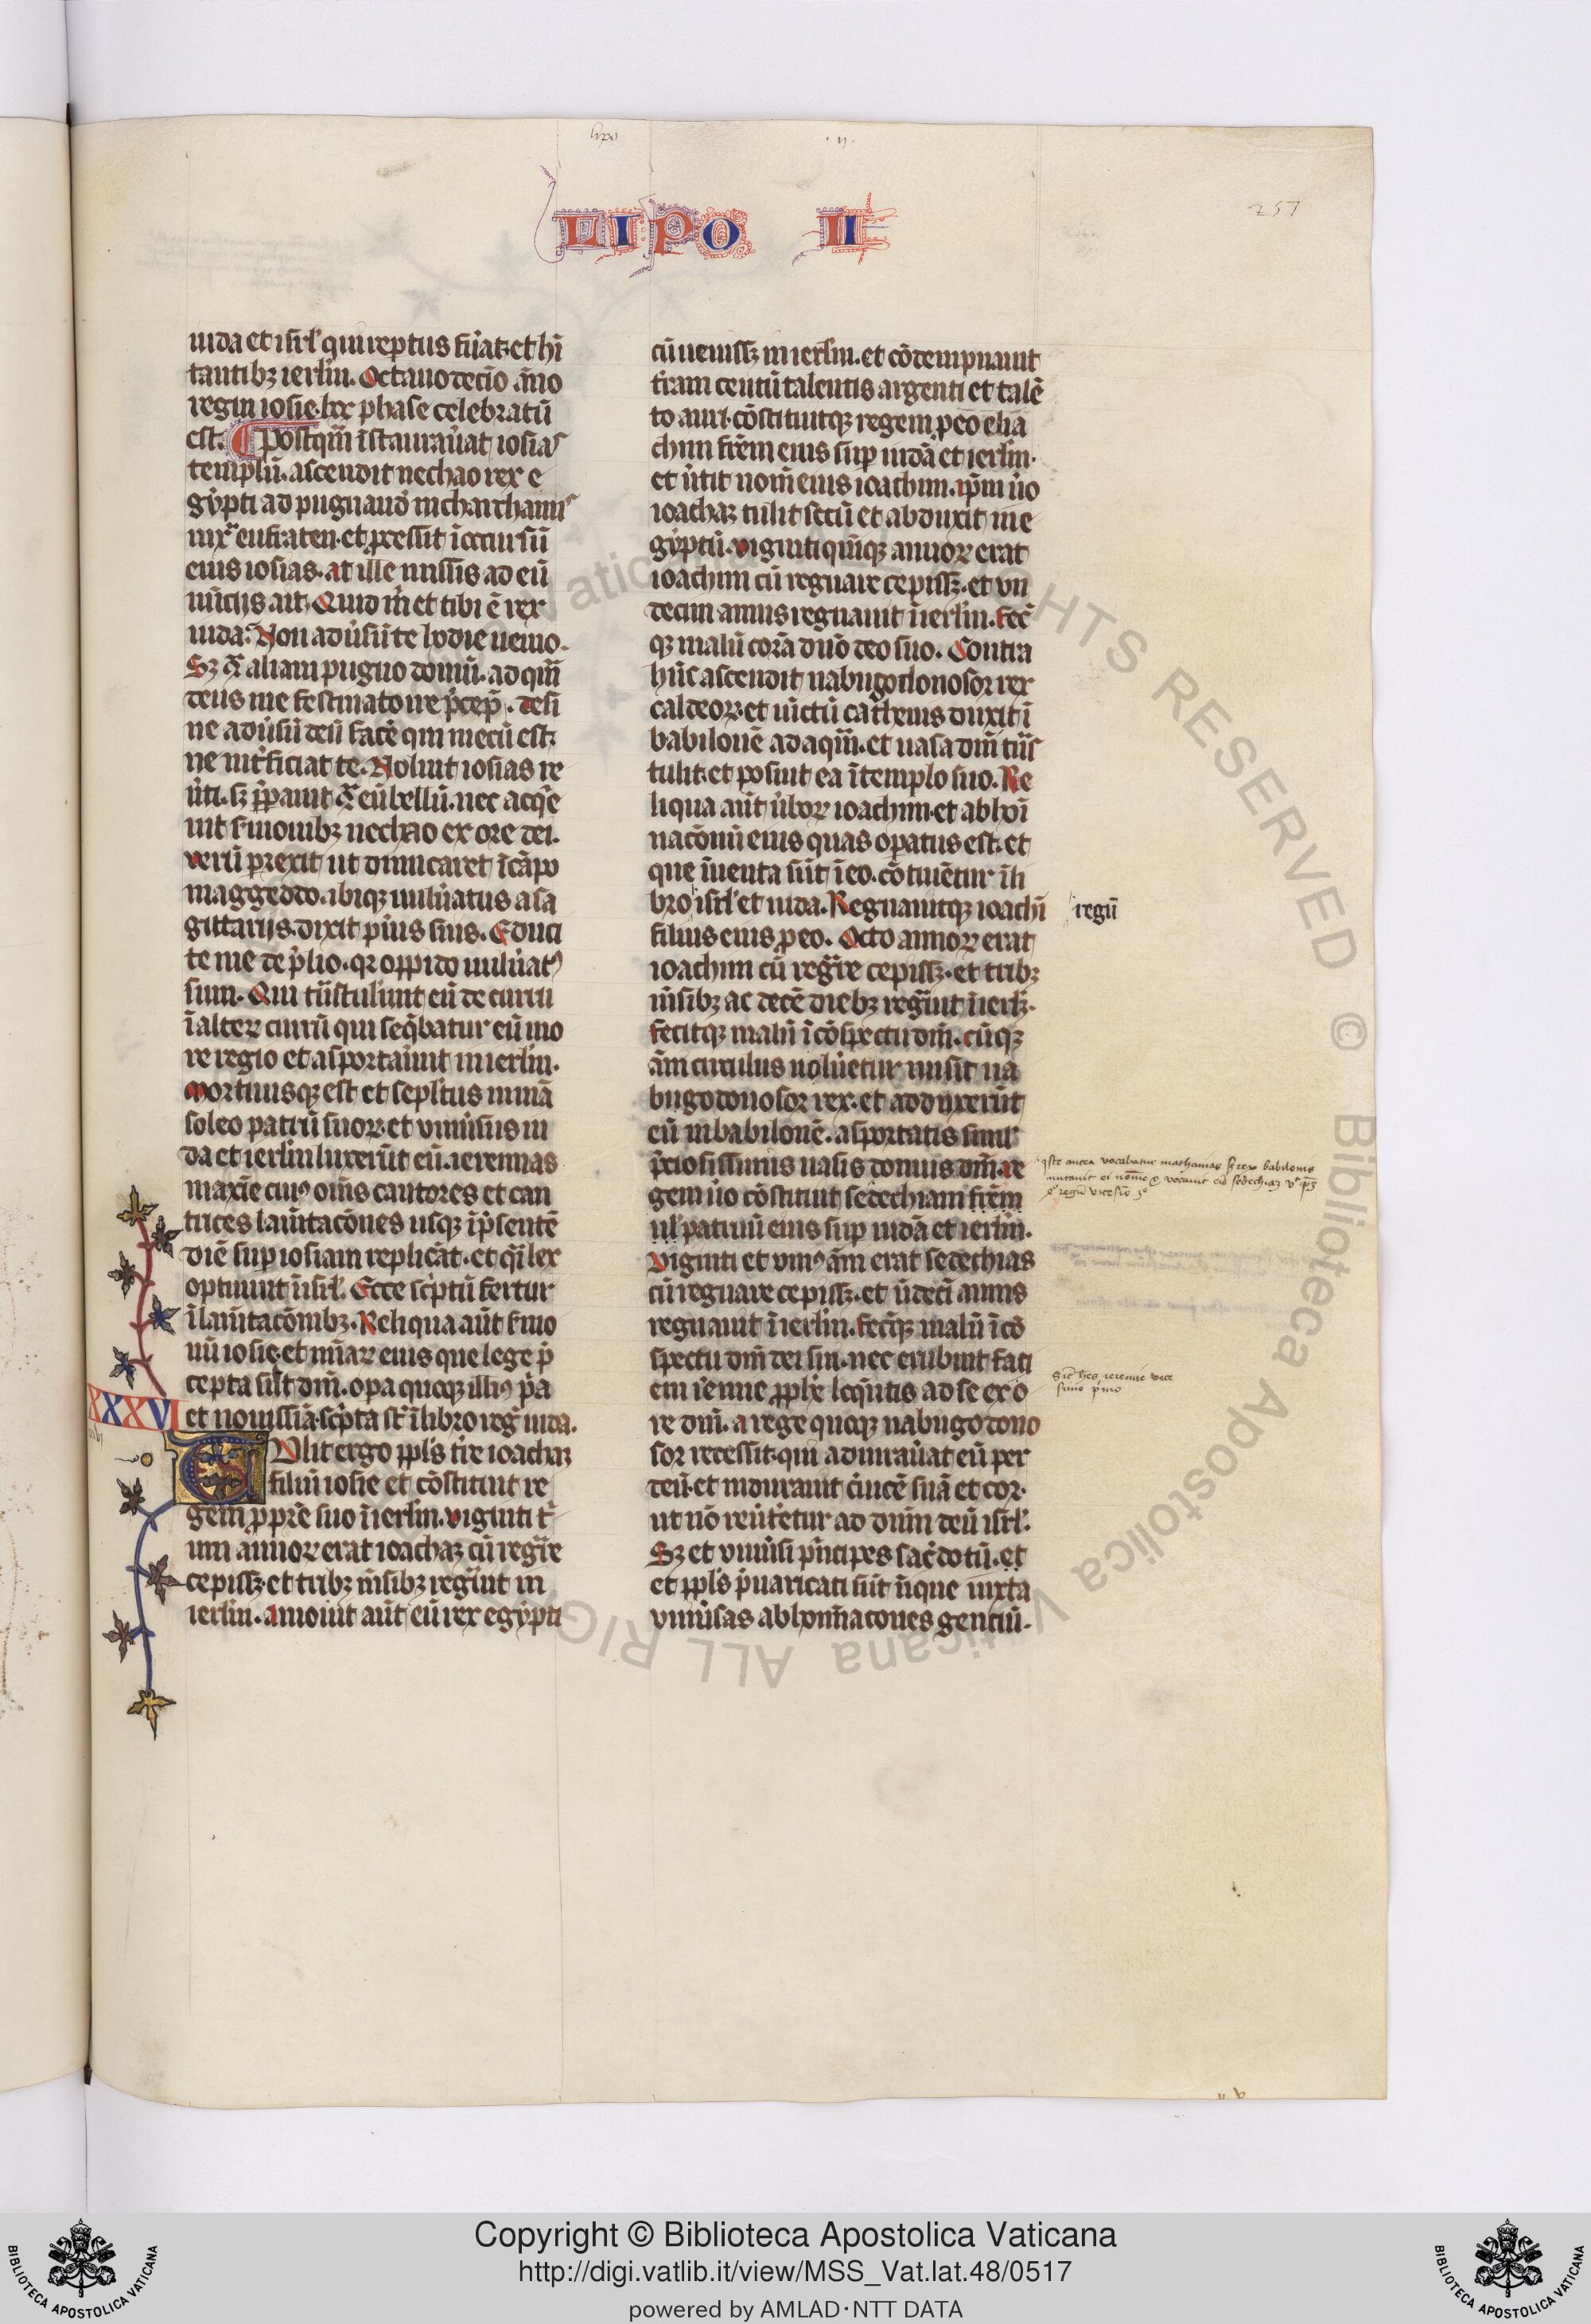 lipo .ij.
LIPO II
257
iuda et isrl' qui reptus fu͛at. et hi͛
tantibꝫ ierlm̄. Octauodecīo āno
regni iosie. hec phase celebratū
est. ¶ Postqm̄ īstaurau͛at iosias
templū. ascendit nechao rex e
gypti ad pugnand͛ in charchamis
iuxᵃ eufraten. et ꝓcessit ī occursū
eius iosias. at ille missis ad eū
nūcijs ait. Quid m̄ et tibi ē rex
iuda. Non adu͛sū te hodie uenio.
Sꝫ ɔᵃ aliam pugno domū. ad qm̄
deus me festinato ire p̄cep̄. desi
ne adu͛sū deū facē qui mecū est.
ne int͛ficiat te. Noluit iosias re
u͛ti. sꝫ p̄pauit ɔᵃ eū bellū. nec acq̄e
uit s͛monibꝫ nechao ex ore dei.
verū p͛rexit ut dimicaret ī cāpo
maggeddo. ibiqꝫ uuln͛atus a sa
gittarijs. dixit pu͛is suis. Educi
te me de p̄lio. qꝛ oppido uuln͛atꝰ
sum. Qui tn̄stul͛unt eū de curru
ī alteꝝ currū qui seq̄batur eū mo
re regio et asportau͛unt in ierlm̄.
mortuusqꝫ est et sepl'tus in mā
soleo patrū suoꝝ. et uniu͛sus iu
da et ierlm̄ luxer̄ūt eū. ieremias
maxīe cuiꝰ om̄s cantores et can
trices lam̄tacōnes usqꝫ ī p̄sentē
diē sup iosiam replicāt. et q̄i lex
optinuit ī isrl'. Ecce sc͛ptū fertur
ī lam̄tacōnibꝫ. Reliqua aūt s͛mo
nū iosie. et mīaꝝ eius que lege p̄
cepta sūt dn̄i. opa quoqꝫ illiꝰ p͛a
XXXVI
et nouissīa. sc͛pta sūt ī libro reḡ iuda.
Vlit ergo ppl's t͛re ioachaꝫ
filiū iosie et cōstituit re
gem ꝓ pr̄e suo ī ierlm̄. viginti t͛
um annoꝝ erat ioachaꝫ cū reḡre
cepissꝫ. et tribꝫ m̄sibꝫ reḡuit in
ierlm̄. amouit aūt eū rex egypti
cū uenissꝫ in ierlm̄. et cōdempnauit
t͛ram centū talentis argenti et talē
to auri. cōstituitqꝫ regem ꝓ eo elia
chim fr̄em eius sup iudā et ierlm̄.
et u͛tit nom̄ eius ioachim. ip̄m u͛o
ioachaꝫ tulit secū et abduxit in e
gyptū. viginti quīqꝫ annoꝝ erat
ioachim cū regnare cepissꝫ. et vn
decim annis regnauit ī ierlm̄. fec͛
qꝫ malū corā dn̄o deo suo. Contra
hūc ascendit nabugodonosor rex
caldeoꝝ. et uīctū cathenis duxit ī
babilonē ad aqm̄. et uasa dn̄i tn̄s
tulit. et posuit ea ī templo suo. Re
liqua aūt u͛boꝝ ioachim. et abhoī
nacōnū eius quas opatus est. et
que īuenta sūt ī eo. cōtinētur ī li
bro isrl' et iuda. Regnauitqꝫ ioachī
regū
filius eius ꝓ eo. Octo annoꝝ erat
ioachim cū reḡre cepissꝫ. et tribꝫ
m̄sibꝫ ac decē diebꝫ reḡuit ī ierlꝫ.
fecitqꝫ malū ī cōspectu dn̄i. cūqꝫ
ān̄i circulus uolu͛etur misit na
bugodonosor rex. et adduxerūt
eū in babilonē. asportatis simul'
p͛ciosissimis uasis domus dn̄i. re
gem u͛o cōstituit sedechiam fr̄em
ul' patruū eius sup iudā et ierlm̄.
Viginti et vniꝰ ān̄i erat sedechias
cū regnare cepissꝫ. et ūdeci annis
regnauit ī ierlm̄. fec͛qꝫ malū ī cō
spectu dn̄i dei sui. nec erubuit faci
em ī͛emie ꝓph͛e loq̄ntis ad se ex o
re dn̄i. a rege quoqꝫ nabugodono
sor recessit. qui adiurau͛at eū per
deū. et indurauit c͛uicē suā et cor.
ut nō reu͛t͛etur ad dn̄m deū isrl'.
Sꝫ et vniu͛si p͛ncipes sac͛dotū. et
et ppl's p͛uaricati sūt īique iuxta
vniu͛sas abhom̄acones gentiū.
iste antea vocabatur mathanias sꝫ rex babilonis
mutauit ei nomē et vocauit eū sedechiaꝫ
Copyright © Biblioteca Apostolica Vaticana
http://digi.vatlib.it/view/MSS_Vat.lat.48/0517
powered by AMLAD·NTT DATA
BIBLIOTECA APOSTOLICA VATICANA
BIBLIOTECA APOSTOLICA VATICANA
ALL RIGHTS RESERVED © Biblioteca Apostolica Vaticana